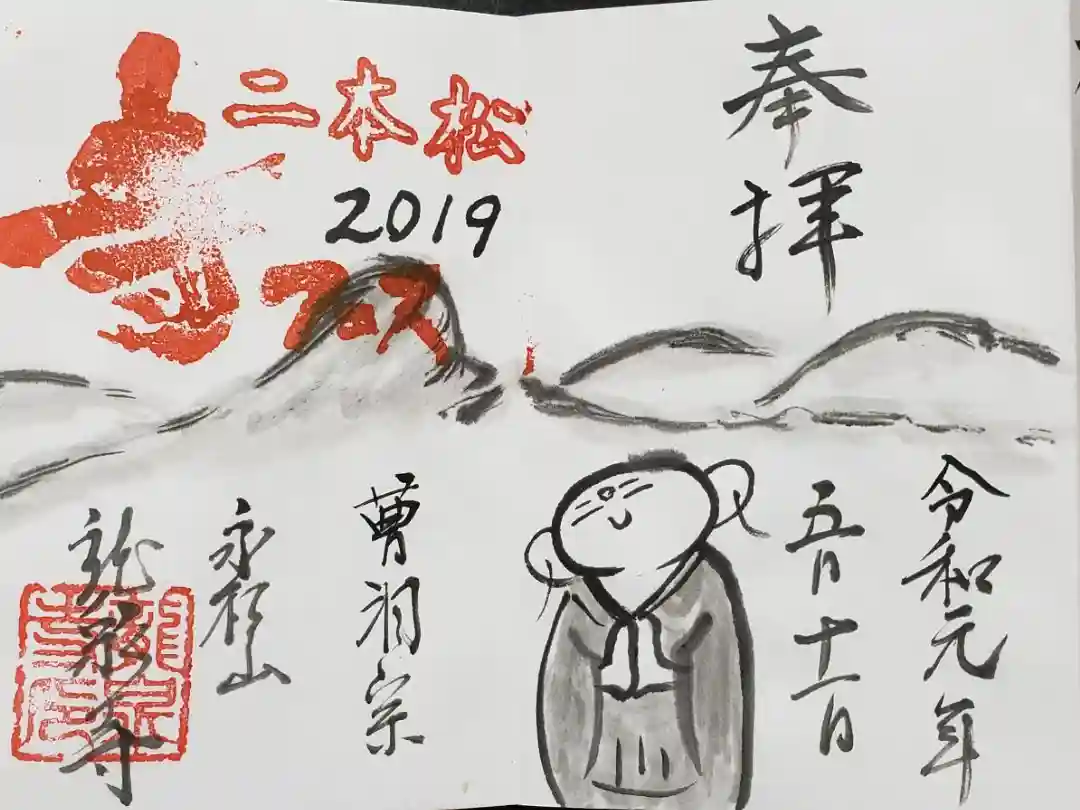 奉拝
令和元年
五月十一日
二本松
2019
曹洞宗
永松山
龍泉寺